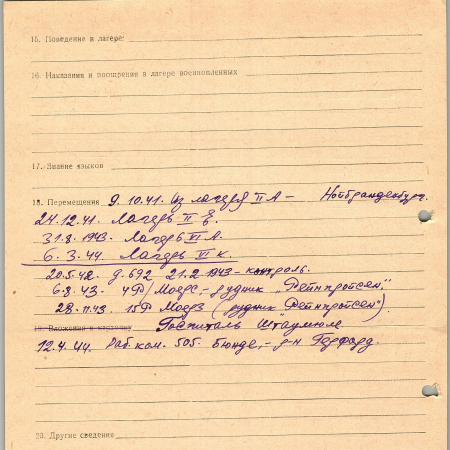 15. Поведение в лагере:
16. Наказания и поощрения в лагере военнопленных
17. Знание языков
18. Перемещения 9.10.41. Из лагеря II А – Нойбранденбург.
24.12.41. Лагерь II
31.8.1943. Лагерь VI А.
6.3.44. Лагерь VI К.
20.5.42. 21.2.1943 – контроль.
6.8.43. 4Ф/Моерс, – рудник "Рейнпройсен",
28.11.43. 15Ф Моерз (рудник "Рейнпройсен").
19. Вложения в карточку Госпиталь Штаумюле
12.4.44. Раб. ком. 505. Бюнде, – р-н Герфорд.
20. Другие сведения